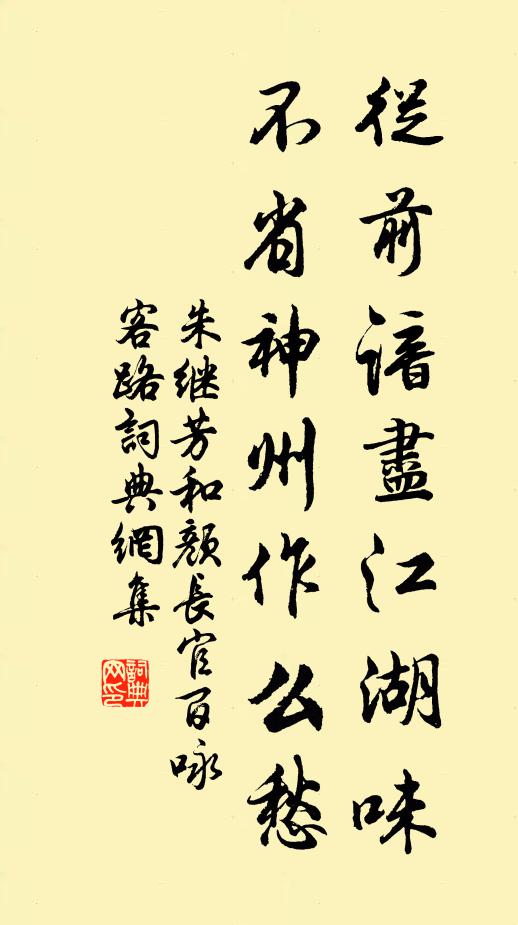 從前諳盡江湖味
不省神州作么愁
朱继芳和顏長官百咏
客路詞典網集
詞典
网印